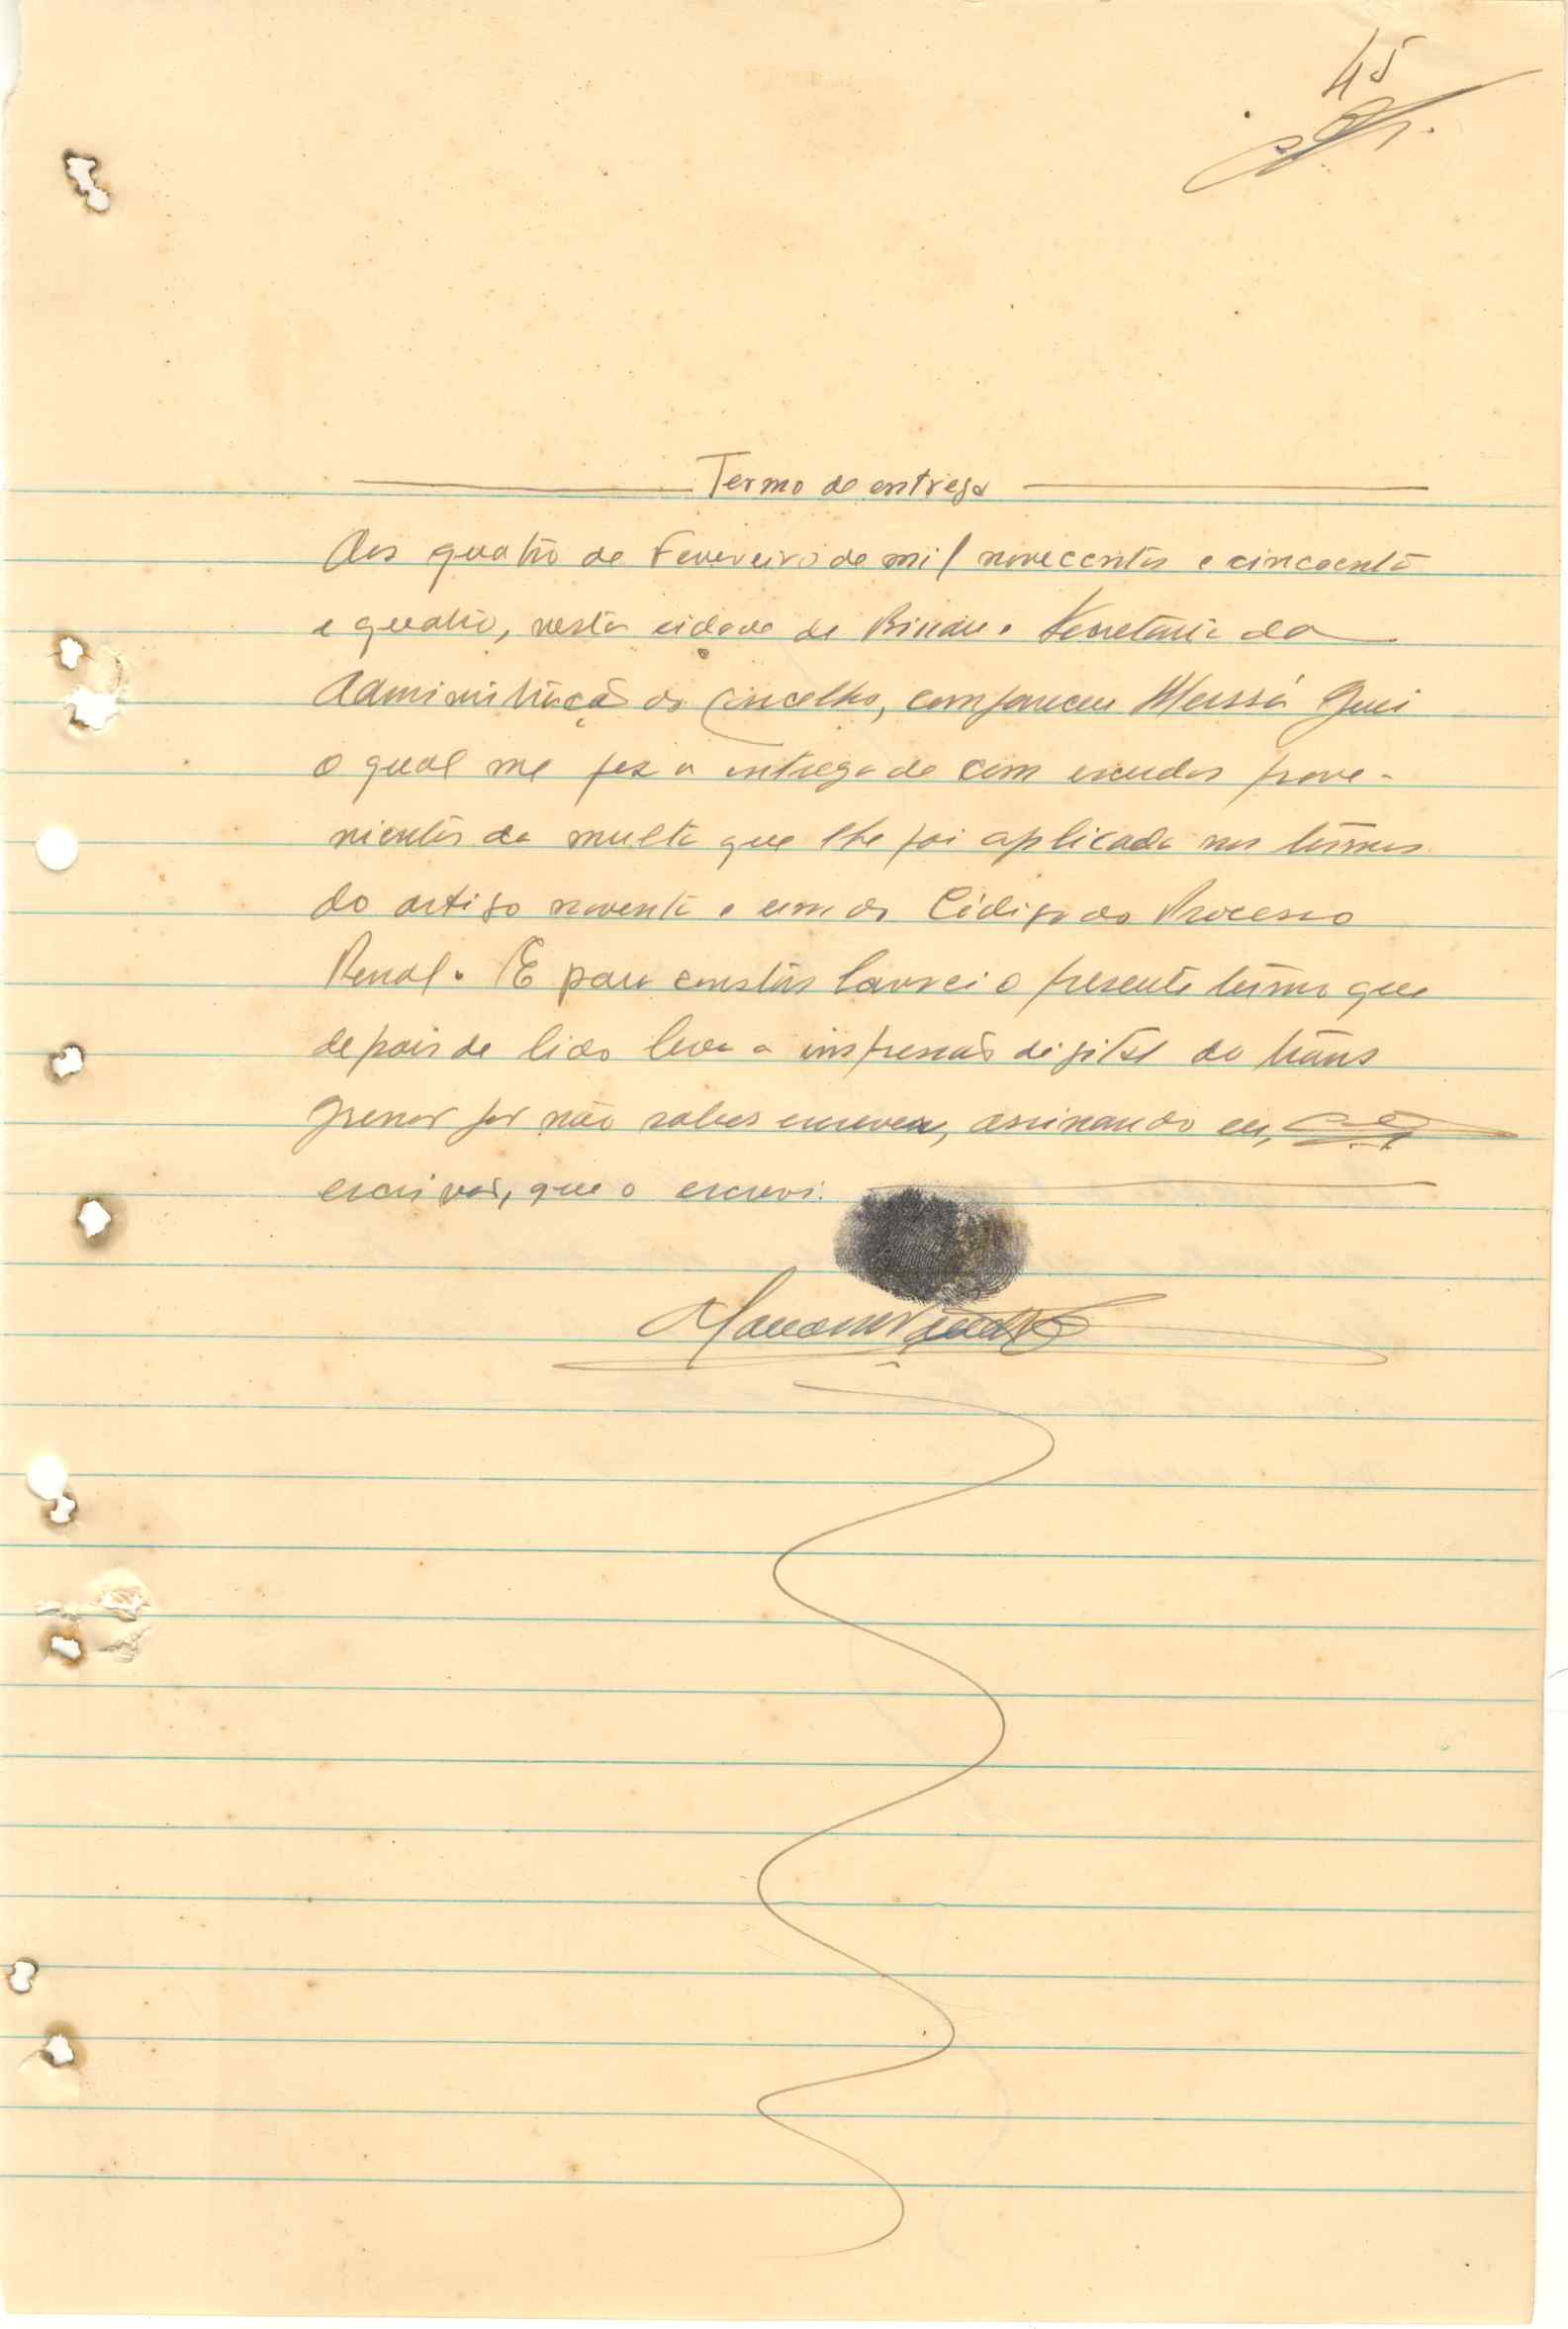 45
Termo de entrega
Aos quatro de Fevereiro de mil novecentos e cincoenta
e quatro, nesta cidade de Bissau e Secretaria da
Administração do Concelho, compareceu Mussá Quei
o qual me fez a entrega de cem escudos prove-
nientes da multa que lhe foi aplicada nos termos
do artigo noventa e um do Código do Processo
Penal. E para constar lavrei o presente termo que
depois de lido leva a impressão digital do trans
gressor por não saber escrever, assinando eu,
escrivão, que o escrevi.